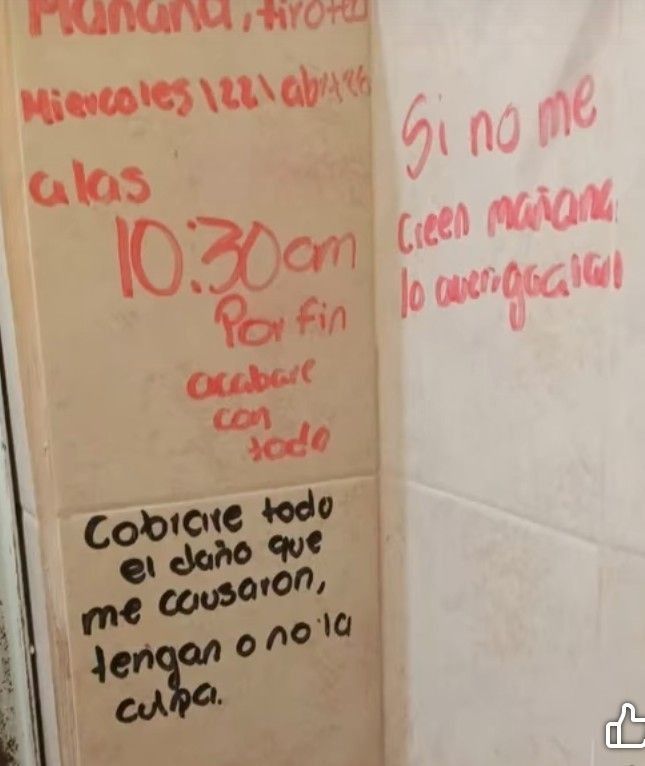 Mañana, tiroteo
Miercoles |22| abr|26
a las
10:30am
Por fin
acabare
con
todo
Cobrare todo
el daño que
me causaron,
tengan o no la
culpa.
Si no me
creen mañana
lo averiguaran